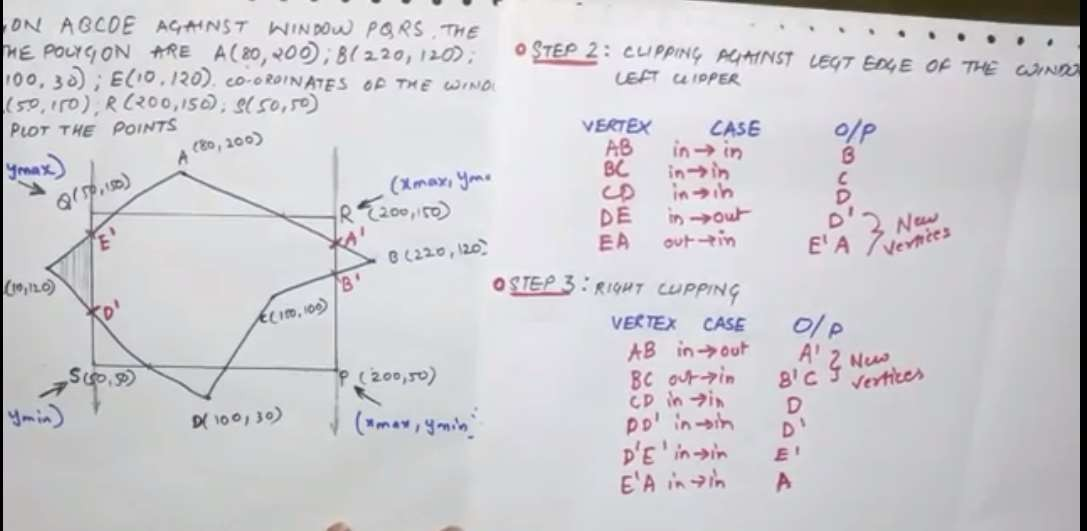 ON ABCDE AGAINST WINDOW PQRS. THE
THE POLYGON ARE A(80,200); B(220,120);
100,30); E(10,120). CO-ORDINATES OF THE WINDO
(50,150); R(200,150); S(50,50)
PLOT THE POINTS
A (80,200)
ymax)
Q(50,150)
(xmax, yma
R (200,150)
E'
A'
B (220,120)
(10,120)
B'
D'
C(150,100)
S(50,50)
P (200,50)
ymin)
D(100,30)
(xmax, ymin)
STEP 2: CLIPPING AGAINST LEGT EDGE OF THE WINDO
LEFT CLIPPER
VERTEX CASE O/P
AB in→in B
BC in→in C
CD in→in D
DE in→out D'
EA out→in E'A
New
vertices
STEP 3: RIGHT CLIPPING
VERTEX CASE O/P
AB in→out A'
BC out→in B'C
New
vertices
CD in→in D
DD' in→in D'
D'E' in→in E'
E'A in→in A